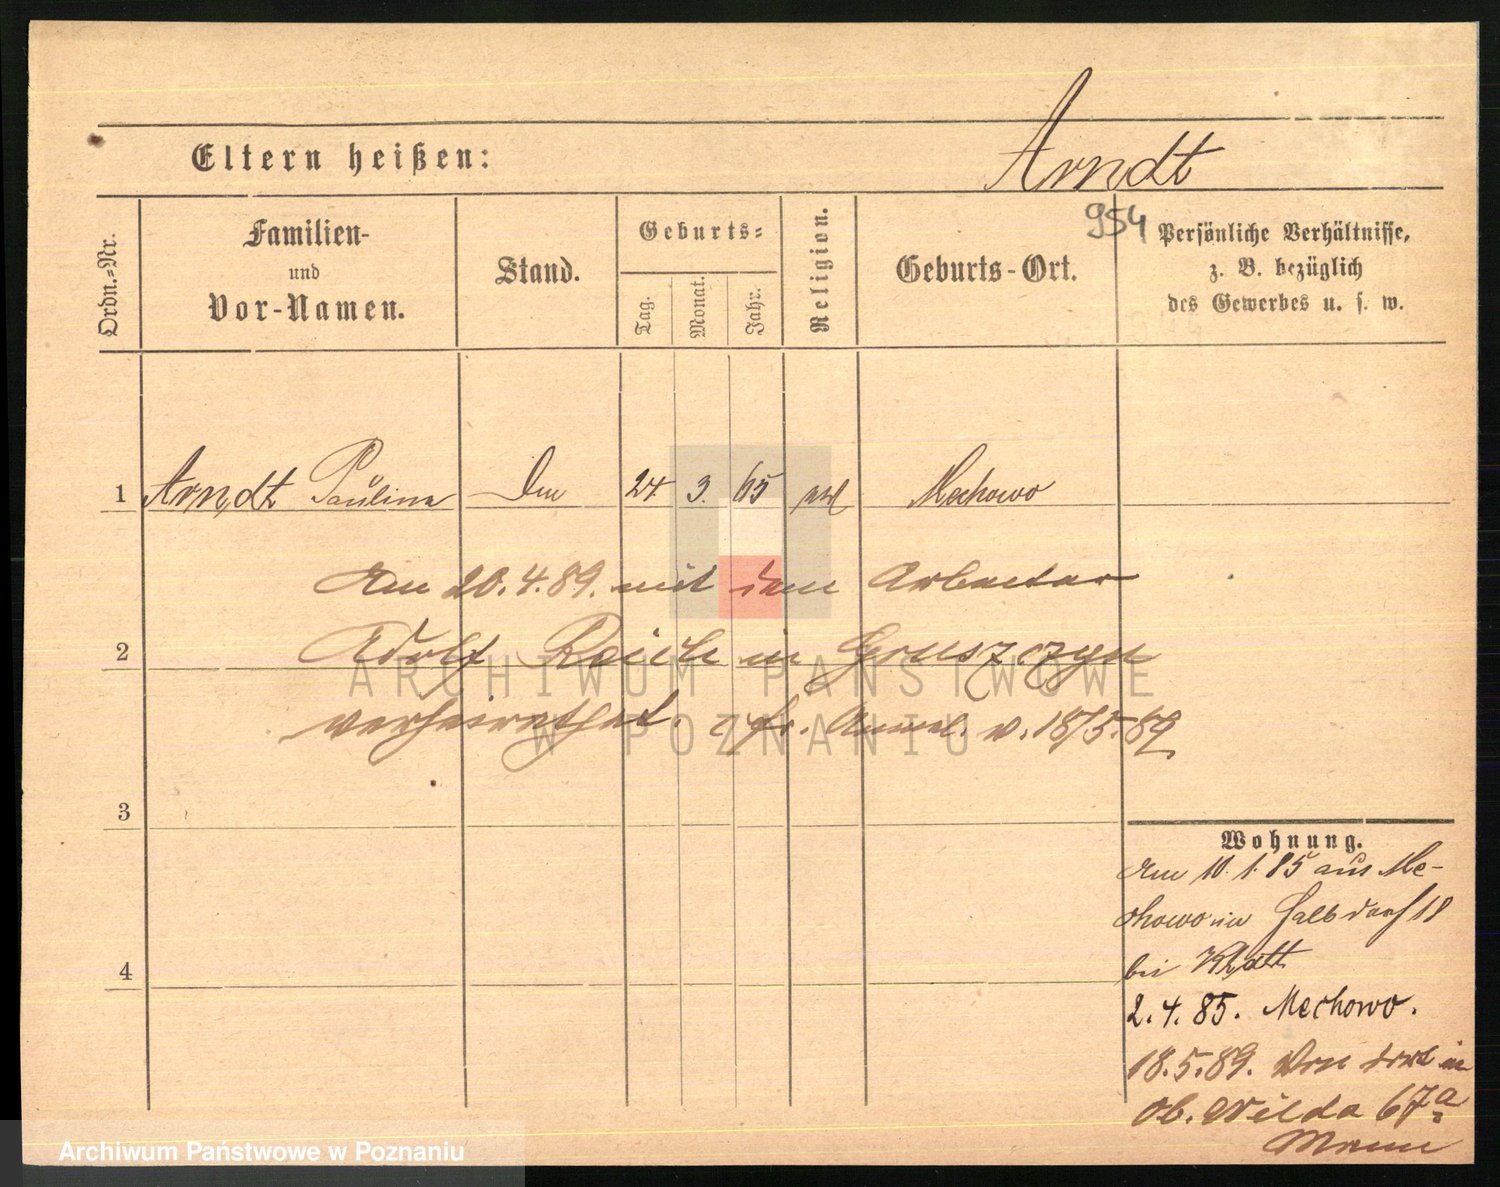 Arndt
Eltern heißen:
954
Ordn.-Nr.
Familien-
und
Vor-Namen.
Stand.
Geburts-
Tag.
Monat.
Jahr.
Religion.
Geburts-Ort.
Persönliche Verhältnisse,
z. B. bezüglich
des Gewerbes u. s. w.
1 Arndt Paulina 24. 3. 65 Mechowo
Am 20.4.89. mit dem Arbeiter
2 Adolf in Gruszczyn
verheirathet. v. 18/5.89
ARCHIWUM PAŃSTWOWE
W POZNANIU
3
Wohnung.
Am 10.1.85 aus Me-
chowo in Halbdorf 18
bei Klatt
4
2.4.85. Mechowo.
18.5.89. Von dort in
Ob. Wilda 67a
Archiwum Państwowe w Poznaniu